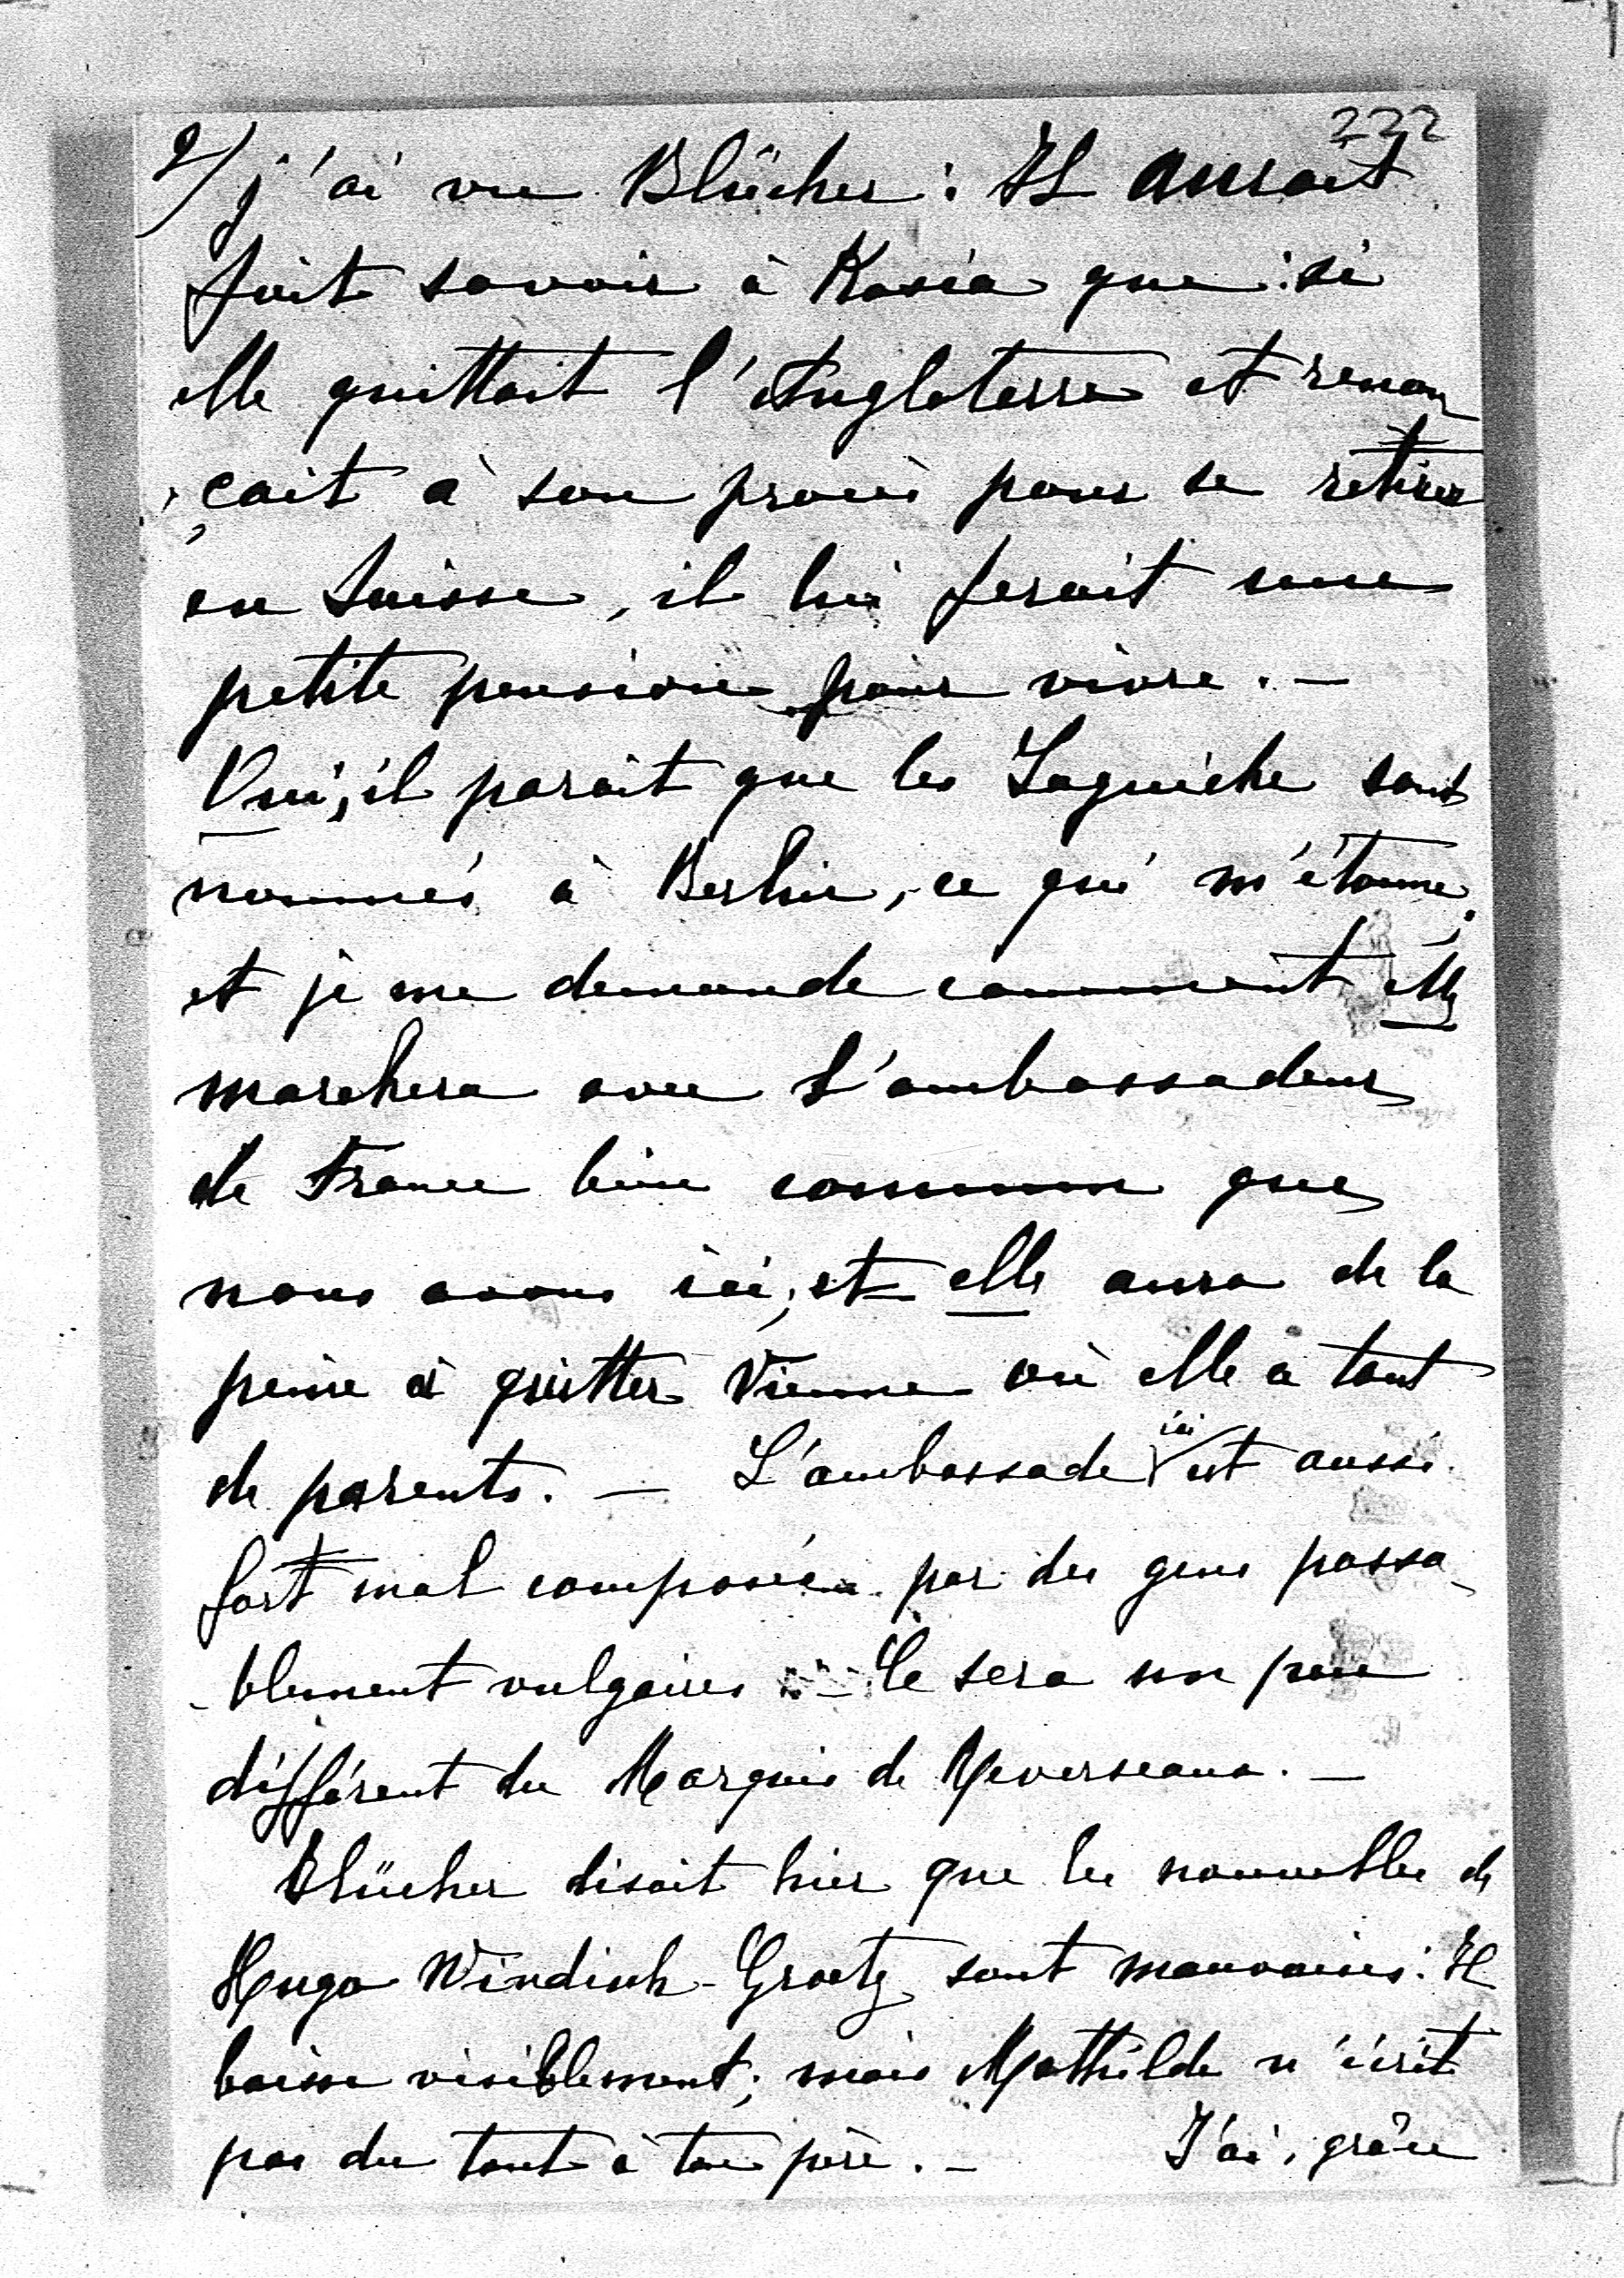 222
2/ j'ai vu Blücher : Il aurait
fait savoir à Kasia que : si
elle quittait l'Angleterre et renon
çait à son procès pour se retirer
en Suisse, il lui ferait une
petite pension pour vivre. —
Oui, il parait que les Laguiche sont
nommés à Berlin, ce qui m'étonne,
et je me demande comment elle
marchera avec l'ambassadeur
de France bien commun que
nous avons ici, et elle aura de la
peine à quitter Vienne où elle a tant
de parents. — L'ambassade ici est aussi
fort mal composée par des gens passa
-blement vulgaires. — Ce sera un peu
différent du Marquis de Reverseaux. —
Blücher disait hier que les nouvelles de
Hugo Windisch-Graetz sont mauvaises : Il
baisse visiblement; mais Mathilde n'écrit
pas du tout à ton père. — J'ai, grâce